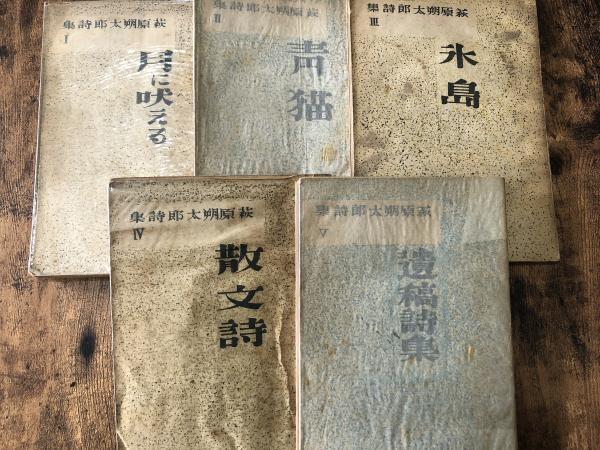 萩原朔太郎詩集
I
月に吠える
萩原朔太郎詩集
II
青猫
萩原朔太郎詩集
III
氷島
萩原朔太郎詩集
IV
散文詩
萩原朔太郎詩集
V
遺稿詩集